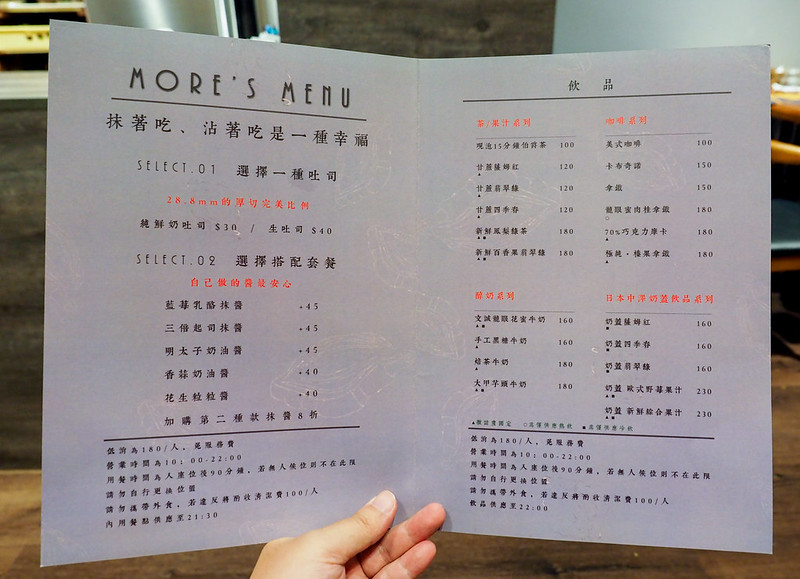 MORE'S MENU
抹著吃、沾著吃是一種幸福
SELECT.01 選擇一種吐司
28.8mm的厚切完美比例
純鮮奶吐司 $30 / 生吐司 $40
SELECT.02 選擇搭配套餐
自己做的醬最安心
藍莓乳酪抹醬 +45
三倍起司抹醬 +45
明太子奶油醬 +45
香蒜奶油醬 +40
花生粒粒醬 +40
加購第二種款抹醬8折
低消為180/人，免服務費
營業時間為10:00-22:00
用餐時間為入座位後90分鐘，若無人候位則不在此限
請勿自行更換位置
請勿攜帶外食，若違反將酌收清潔費100/人
內用餐點供應至21:30
飲品
茶/果汁系列
現泡15分鐘伯爵茶 100
甘蔗薩姆紅 120
▲
甘蔗翡翠綠 120
▲
甘蔗四季春 120
▲
新鮮鳳梨綠茶 180
▲■
新鮮百香果翡翠綠 180
▲■
咖啡系列
美式咖啡 100
卡布奇諾 150
拿鐵 150
龍眼蜜肉桂拿鐵 180
○
70%巧克力摩卡 180
極純·榛果拿鐵 180
醇奶系列
文誠龍眼花蜜牛奶 160
▲■
手工黑糖牛奶 160
▲
焙茶牛奶 180
▲
大甲芋頭牛奶 180
▲■
日本中澤奶蓋飲品系列
奶蓋薩姆紅 160
■
奶蓋四季春 160
■
奶蓋翡翠綠 160
■
奶蓋 歐式野莓果汁 230
▲■
奶蓋 新鮮綜合果汁 230
▲■
▲甜度選固定 ○為僅供應熱飲 ■為僅供應冷飲
低消為180/人，免服務費
營業時間為10:00-22:00
用餐時間為入座位後90分鐘，若無人候位則不在此限
請勿自行更換位置
請勿攜帶外食，若違反將酌收清潔費100/人
飲品供應至22:00